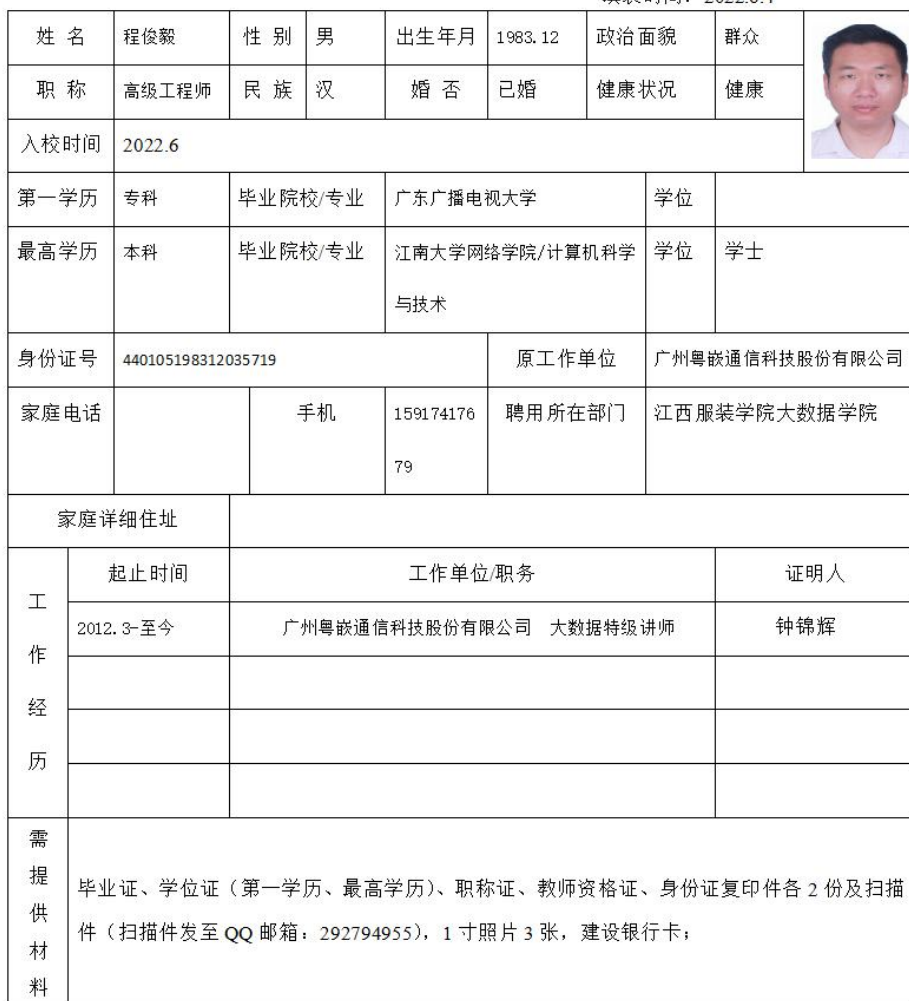 姓 名 程俊毅 性 别 男 出生年月 1983.12 政治面貌 群众
职 称 高级工程师 民 族 汉 婚 否 已婚 健康状况 健康
入校时间 2022.6
第一学历 专科 毕业院校/专业 广东广播电视大学 学位
最高学历 本科 毕业院校/专业 江南大学网络学院/计算机科学 学位 学士
与技术
身份证号 440105198312035719 原工作单位 广州粤嵌通信科技股份有限公司
家庭电话 手机 159174176 聘用所在部门 江西服装学院大数据学院
79
家庭详细住址
工作经历
起止时间 工作单位/职务 证明人
2012.3-至今 广州粤嵌通信科技股份有限公司 大数据特级讲师 钟锦辉
需提供材料
毕业证、学位证（第一学历、最高学历）、职称证、教师资格证、身份证复印件各 2 份及扫描
件（扫描件发至 QQ 邮箱：292794955），1 寸照片 3 张，建设银行卡；